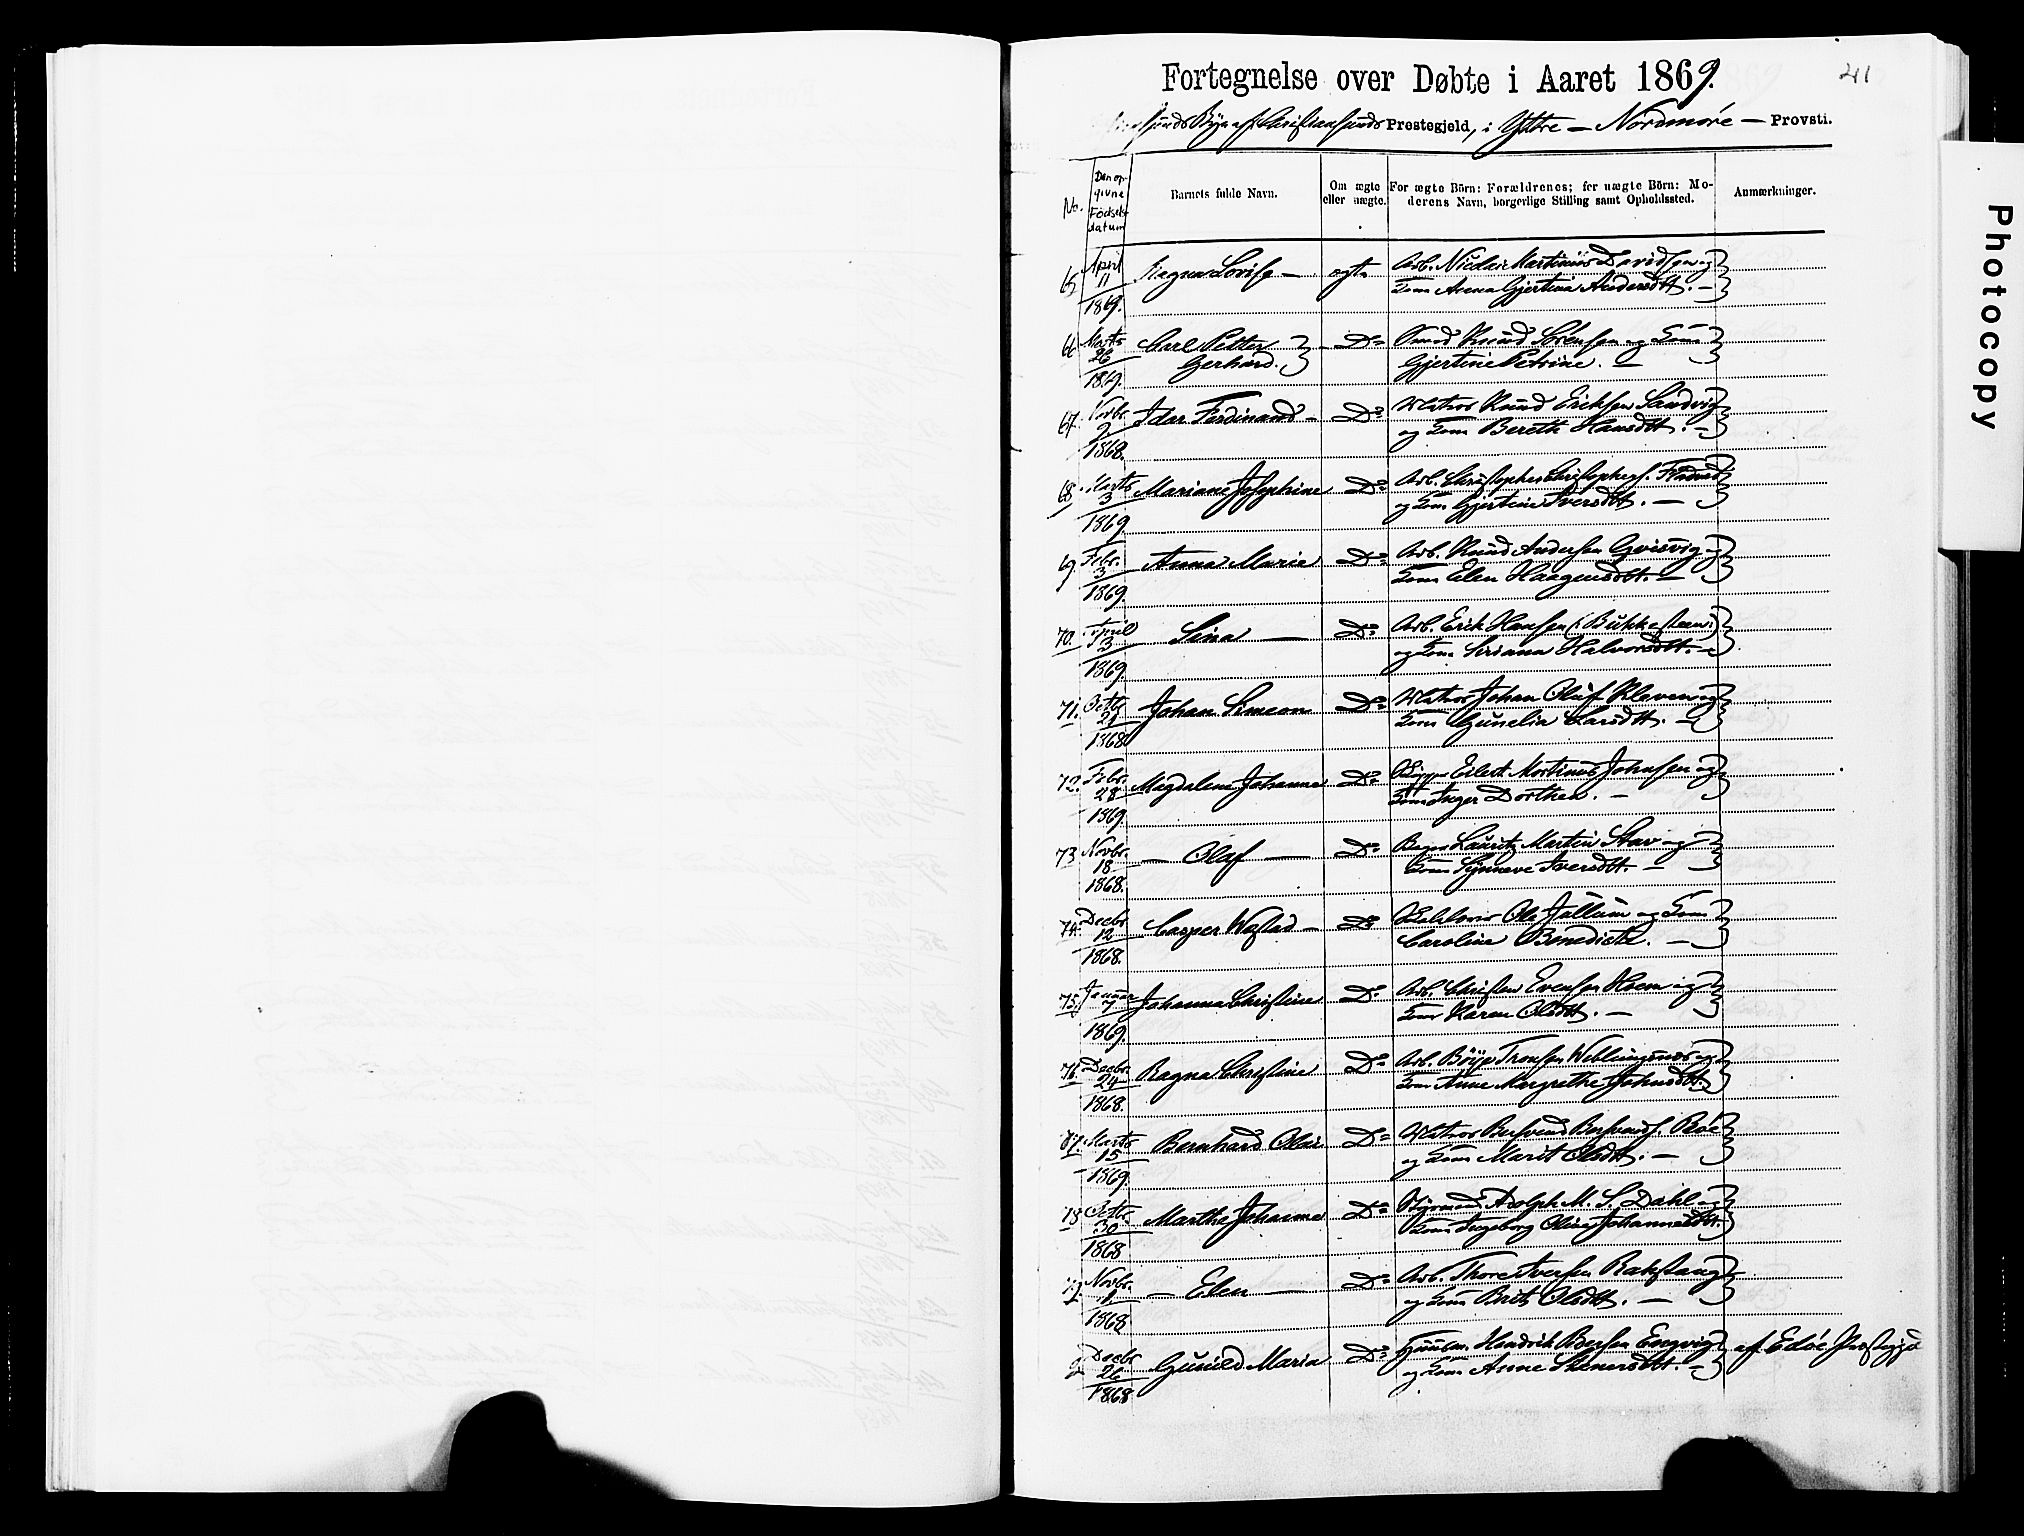 Fortegnelse over Døbte i Aaret 1869.
41
Byn af Christiansunds Prestegjeld, i Ytre — Nordmøre — Provsti.
No.
Den op-
givne
Födsels-
datum
Barnets fulde Navn.
Om ægte
eller uægte.
For ægte Börn: Forældrenes; for uægte Börn: Mo-
derens Navn, borgerlige Stilling samt Opholdssted.
Anmærkninger.
65 April 11 1869. Ragna Lovise — ægte
Arb. Nicolai Martinus Davidsen og
Kone Arena Gjertina Andersdtt. —
66 Marts 26 1869. Carl Petter Gerhard. Do
Knud Sörensen og Kone
Gjertine Petrine. —
67. Novbr. 2 1868. Idar Ferdinand — Do
Matros Knud Eriksen Sandvig
og Kone Bereth Hansdtt. —
68. Marts 3 1869. Mariane Josephine Do
Arb. Christopher Christophers.
og Kone Gjertine Iversdtt. —
69. Febr. 3 1869. Anna Marie Do
Arb. Knud Andersen Gvisvig og
Kone Elen Haagensdtt. —
70. April 3 1869. Sina — Do
Arb. Erik Hansen (i Bukkesteen)
og Kone Seriana Halvorsdtt. —
71. Octbr. 21 1868 Johan Simeon Do
Matros Johan Oluf Kleven og
Kone Gunelia Larsdtt. —
72. Febr. 28 1869. Magdalena Johanna Do
Skipper Eilert Mortinus Johnsen og
Kone Inger Dorthea. —
73 Novbr. 18 1868. — Olaf — Do
Bager Lauritz Martin Stav og
Kone Synneve Iversdtt. —
74. Decbr. 12 1868. Casper Wastad — Do
Ole Jullum og Kone
Caroline Benedicte. —
75. Januar 7 1869. Johanna Christine Do
Arb. Christen Evensen Hoem og
Kone Karen Olsdtt. —
76. Decbr. 24 1868. Ragna Christine Do
Arb. Böye Tronsen Weblungsnes og
Kone Anne Margrethe Johnsdtt.
87. Marts 15 1869 Bernhard Olai Do
Matros Bersvend Bersvends. Röe
og Kone Marit Olsdtt. —
78 Octbr. 30 1868 Marthe Johanna Do
Styrmand Adolph M. S. Dahl og
Kone Ingeborg Olina Johannesdtt.
79. Novbr. 1 1868 — Elen — Do
Arb. Thore Iversen Rakstang
og Kone Brit Olsdtt. —
Decbr 26 1868 Gunild Maria Do
Huusm. Hendrik Bersen Engvig
og Kone Anne Stenersdtt. —
af Edöe Prestegjd
Photocopy